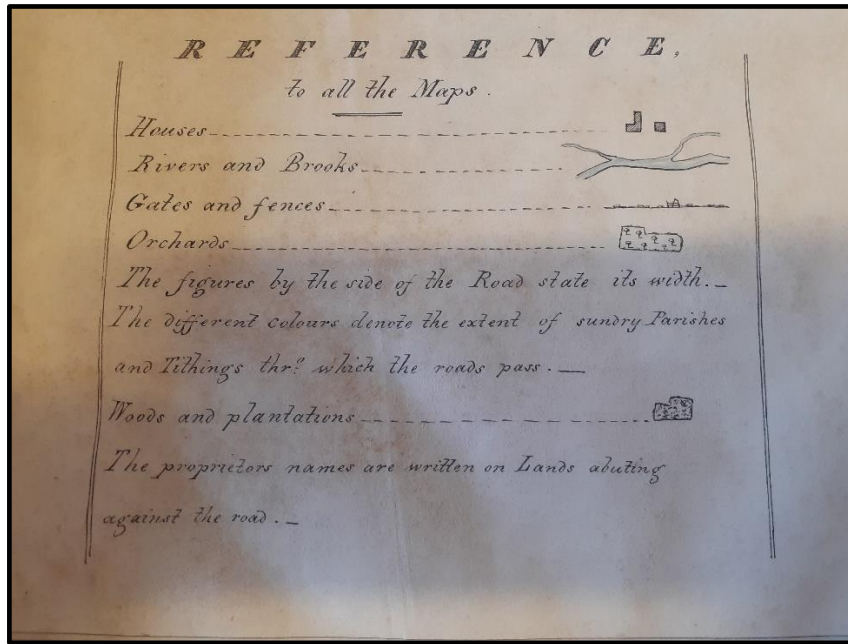 REFERENCE,
to all the Maps.
Houses
Rivers and Brooks
Gates and fences
Orchards
The figures by the side of the Road state its width._
The different colours denote the extent of sundry Parishes
and Tithings thro. which the roads pass.__
Woods and plantations
The proprietors names are written on Lands abuting
against the road._